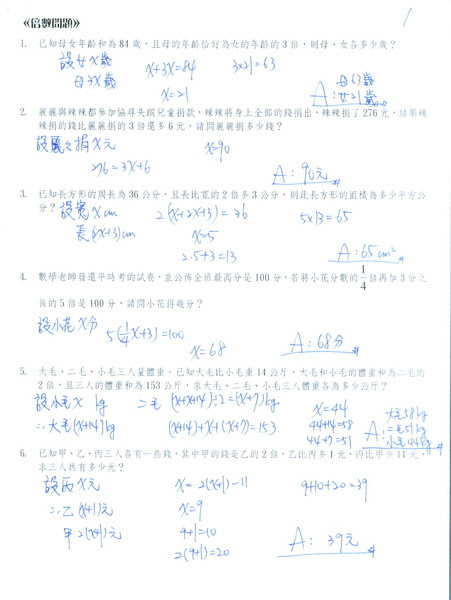 《倍數問題》
1
1. 已知母女年齡和為 84 歲，且母的年齡恰好為女的年齡的 3 倍，則母、女各多少歲？
設女 x 歲 x+3x=84 3×21=63
母 3x 歲 x=21 A：母63歲 女21歲
2. 麗麗與辣辣都參加協尋失蹤兒童捐款，辣辣將身上全部的錢捐出，辣辣捐了 276 元，結果辣
辣捐的錢比麗麗捐的 3 倍還多 6 元，請問麗麗捐多少錢？
設麗麗捐 x 元 x=90
276=3x+6 A：90元
3. 已知長方形的周長為 36 公分，且長比寬的 2 倍多 3 公分，則此長方形的面積為多少平方公
分？
設寬 x cm 2(x+2x+3)=36 5×13=65
長(2x+3)cm x=5
2·5+3=13 A：65cm²
4. 數學老師發還平時考的試卷，並公佈全班最高分是 100 分，若將小花分數的 1/4 倍再加 3 分之
後的 5 倍是 100 分，請問小花得幾分？
設小花 x 分 5(1/4x+3)=100 A：68分
x=68
5. 大毛、二毛、小毛三人量體重。已知大毛比小毛重 14 公斤，大毛和小毛的體重和為二毛的
2 倍，且三人的體重和為 153 公斤，求大毛、二毛、小毛三人體重各為多少公斤？
設小毛 x kg 二毛 (x+x+14)÷2=(x+7)kg x=44
∴大毛(x+14)kg (x+14)+x+(x+7)=153 44+14=58
44+7=51 A：大毛58kg 二毛51kg 小毛44kg
6. 已知甲、乙、丙三人各有一些錢，其中甲的錢是乙的 2 倍，乙比丙多 1 元，丙比甲少 11 元，
求三人共有多少元？
設丙 x 元 x=2(x+1)-11 9+10+20=39
∴乙(x+1)元 x=9
甲2(x+1)元 9+1=10
2(9+1)=20 A：39元